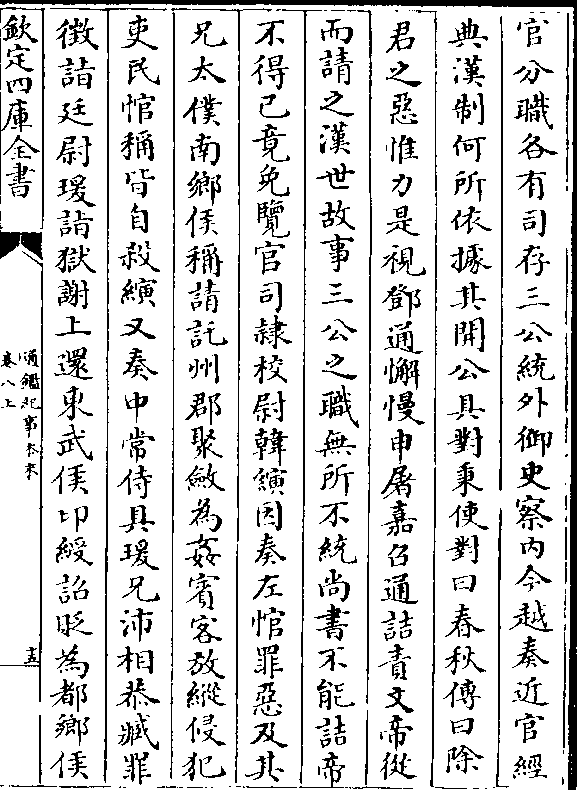 官分職各有司存三公統外御史察内今越奏近官經
典漢制何所依據其開公具對秉使對曰春秋傳曰除
君之惡惟力是視鄧通懈慢申屠嘉召通詰責文帝從
而請之漢世故事三公之職無所不統尚書不能詰帝
不得已竟免覽官司隸校尉韓縯因奏左悺罪惡及其
兄太僕南鄉侯稱請託州郡聚斂為姦賓客放縱侵犯
吏民悺稱皆自殺縯又奏中常侍具瑗兄沛相恭臧罪
徴詣廷尉瑗詣獄謝上還東武侯印綬詔貶為都鄉侯
欽定四庫全書
通鑑紀事本末
卷八上
十五